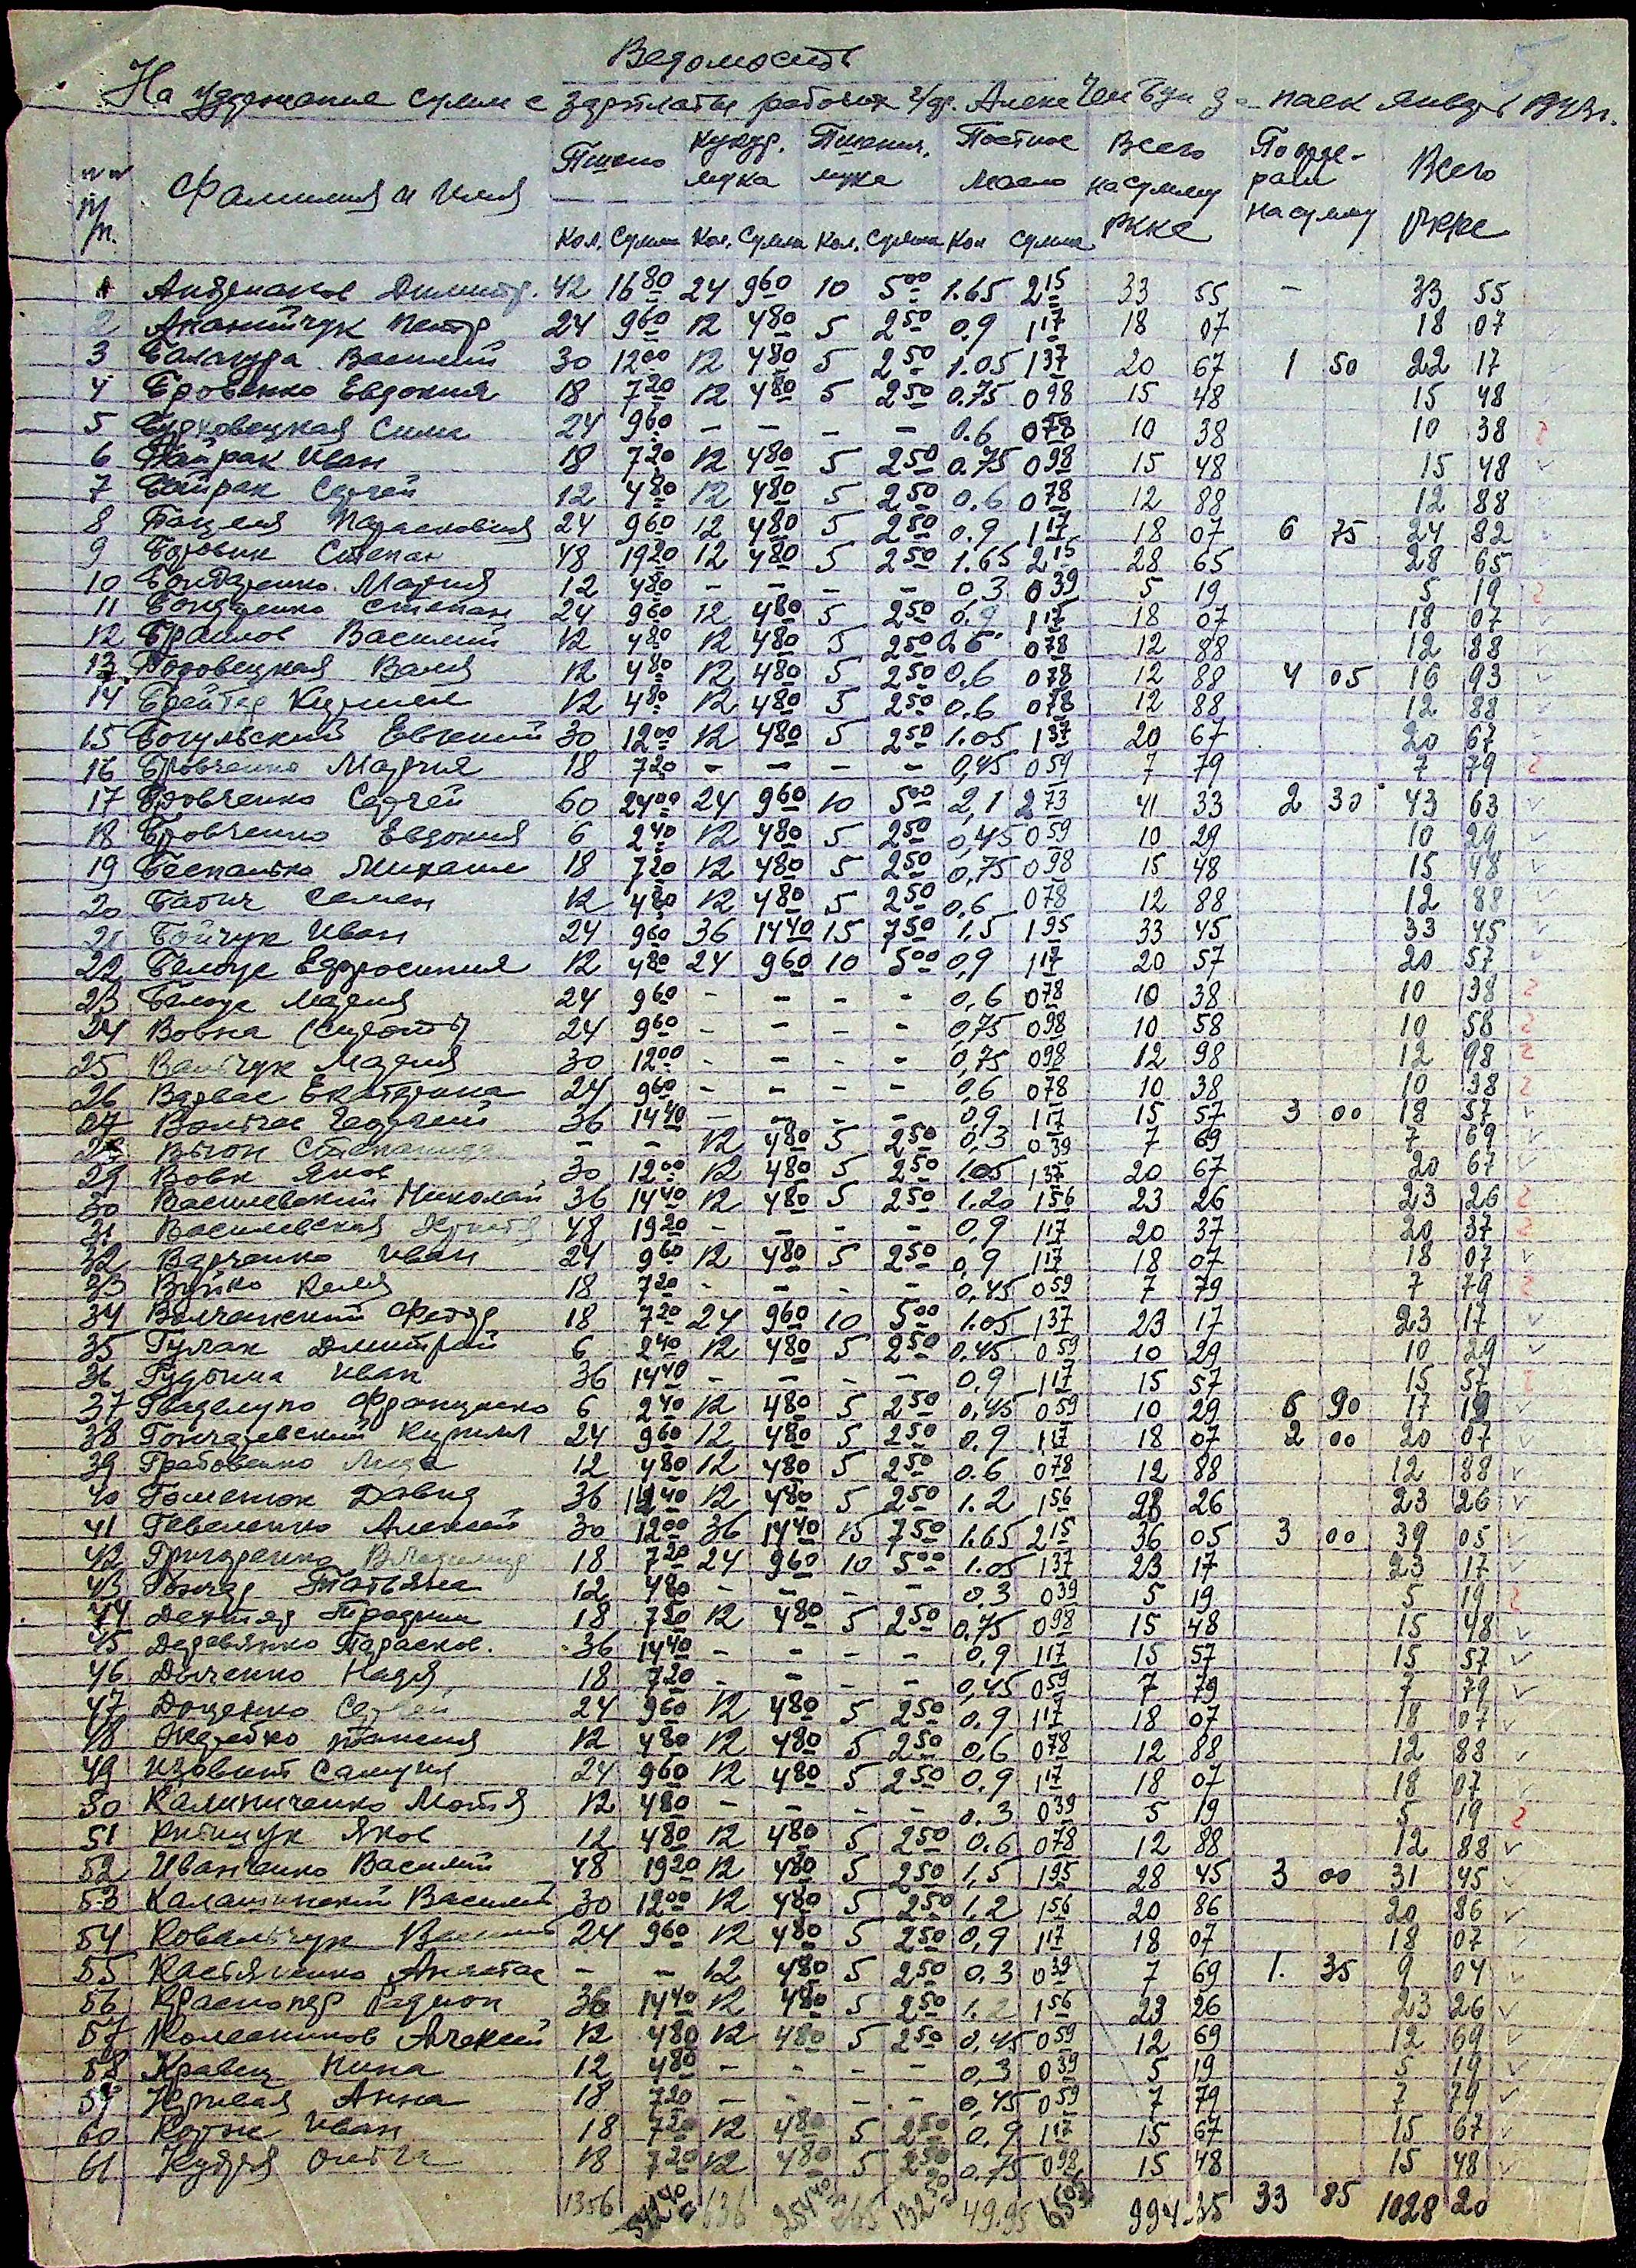 5
Ведомость
На удержание сумм с зарплаты рабочих за паек январь 1943г.
Фамилия и Имя Пшено Кукур. мука Пшенич. мука Постное Масло Всего на сумму РККе По орде-рам на сумму Всего РККе
п/п. Кол. Сумма Кол. Сумма Кол. Сумма Кол Сумма
1 Димитр. 42 16 80 24 9 60 10 5 00 1.65 2 15 33 55 – 33 55
2 Ананийчук Петр 24 9 60 12 4 80 5 2 50 0.9 1 17 18 07 18 07
3 Балагура Василий 30 12 00 12 4 80 5 2 50 1.05 1 37 20 67 1 50 22 17
4 Бровенко Евдокия 18 7 20 12 4 80 5 2 50 0.75 0 98 15 48 15 48
5 Сима 24 9 60 – – – – 0.6 0 78 10 38 10 38
6 Байрак Иван 18 7 20 12 4 80 5 2 50 0.75 0 98 15 48 15 48
7 Байрак Сергей 12 4 80 12 4 80 5 2 50 0.6 0 78 12 88 12 88
8 Парасковия 24 9 60 12 4 80 5 2 50 0.9 1 17 18 07 6 75 24 82
9 Боровик Степан 48 19 20 12 4 80 5 2 50 1.65 2 15 28 65 28 65
10 Бондаренко Мария 12 4 80 – – – – 0,3 0 39 5 19 5 19
11 Бондаренко Степан 24 9 60 12 4 80 5 2 50 0.9 1 17 18 07 18 07
12 Браилов Василий 12 4 80 12 4 80 5 2 50 0.6 0 78 12 88 12 88
13 Валя 12 4 80 12 4 80 5 2 50 0.6 0 78 12 88 4 05 16 93
14 12 4 80 12 4 80 5 2 50 0.6 0 78 12 88 12 88
15 Богульский Евгений 30 12 00 12 4 80 5 2 50 1.05 1 37 20 67 20 67
16 Бровченко Мария 18 7 20 – – – – 0,45 0 59 7 79 7 79
17 Бровченко Сергей 60 24 00 24 9 60 10 5 00 2,1 2 73 41 33 2 30 43 63
18 Бровченко Евдокия 6 2 40 12 4 80 5 2 50 0,45 0 59 10 29 10 29
19 Беспалько Михаил 18 7 20 12 4 80 5 2 50 0,75 0 98 15 48 15 48
20 Семен 12 4 80 12 4 80 5 2 50 0,6 0 78 12 88 12 88
21 Бойчук Иван 24 9 60 36 14 40 15 7 50 1,5 1 95 33 45 33 45
22 Белоус Ефросиния 12 4 80 24 9 60 10 5 00 0,9 1 17 20 57 20 57
23 Белоус Мария 24 9 60 – – – – 0,6 0 78 10 38 10 38
24 Вовка (сироты) 24 9 60 – – – – 0,75 0 98 10 58 10 58
25 Мария 30 12 00 – – – – 0,75 0 98 12 98 12 98
26 Варвас Екатерина 24 9 60 – – – – 0,6 0 78 10 38 10 38
27 Георгий 36 14 40 – – – – 0,9 1 17 15 57 3 00 18 57
28 Вьюн Степанида – – 12 4 80 5 2 50 0,3 0 39 7 69 7 69
29 Вовк Яков 30 12 00 12 4 80 5 2 50 1.05 1 37 20 67 20 67
30 Василевский Николай 36 14 40 12 4 80 5 2 50 1.20 1 56 23 26 23 26
31 Василевская 48 19 20 – – – – 0,9 1 17 20 37 20 37
32 Варченко Иван 24 9 60 12 4 80 5 2 50 0,9 1 17 18 07 18 07
33 Вуйко 18 7 20 – – – – 0,45 0 59 7 79 7 79
34 Волчанский Федор 18 7 20 24 9 60 10 5 00 1.05 1 37 23 17 23 17
35 Гулак Дмитрий 6 2 40 12 4 80 5 2 50 0,45 0 59 10 29 10 29
36 Иван 36 14 40 – – – – 0.9 1 17 15 57 15 57
37 6 2 40 12 4 80 5 2 50 0,45 0 59 10 29 6 90 17 19
38 Гончаревский Кирилл 24 9 60 12 4 80 5 2 50 0.9 1 17 18 07 2 00 20 07
39 Грабовенко Лида 12 4 80 12 4 80 5 2 50 0.6 0 78 12 88 12 88
40 Гоменюк Давид 36 14 40 12 4 80 5 2 50 1.2 1 56 23 26 23 26
41 Гевеленко Алексей 30 12 00 36 14 40 15 7 50 1.65 2 15 36 05 3 00 39 05
42 Григоренко Владимир 18 7 20 24 9 60 10 5 00 1.05 1 37 23 17 23 17
43 Гончар Татьяна 12 4 80 – – – – 0.3 0 39 5 19 5 19
44 18 7 20 12 4 80 5 2 50 0.75 0 98 15 48 15 48
45 Деревянко Парасков. 36 14 40 – – – – 0,9 1 17 15 57 15 57
46 Дяченко Надя 18 7 20 – – – – 0,45 0 59 7 79 7 79
47 Доценко Сергей 24 9 60 12 4 80 5 2 50 0.9 1 17 18 07 18 07
48 Жеребко 12 4 80 12 4 80 5 2 50 0,6 0 78 12 88 12 88
49 24 9 60 12 4 80 5 2 50 0.9 1 17 18 07 18 07
50 Калиниченко Мотя 12 4 80 – – – – 0.3 0 39 5 19 5 19
51 Яков 12 4 80 12 4 80 5 2 50 0.6 0 78 12 88 12 88
52 Иванченко Василий 48 19 20 12 4 80 5 2 50 1,5 1 95 28 45 3 00 31 45
53 Калашинский Василий 30 12 00 12 4 80 5 2 50 1.2 1 56 20 86 20 86
54 Ковальчук 24 9 60 12 4 80 5 2 50 0,9 1 17 18 07 18 07
55 – – 12 4 80 5 2 50 0.3 0 39 7 69 1. 35 9 04
56 Краснопер Радион 36 14 40 12 4 80 5 2 50 1.2 1 56 23 26 23 26
57 Колесников Алексей 12 4 80 12 4 80 5 2 50 0,45 0 59 12 69 12 69
58 Кравец Нина 12 4 80 – – – – 0,3 0 39 5 19 5 19
59 Анна 18 7 20 – – – – 0,45 0 59 7 79 7 79
60 Иван 18 7 20 12 4 80 5 2 50 0,9 1 17 15 67 15 67
61 Кудря Ольга 18 7 20 12 4 80 5 2 50 0,75 0 98 15 48 15 48
1356 542 40 636 254 40 265 132 50 49.95 994-35 33 85 1028 20